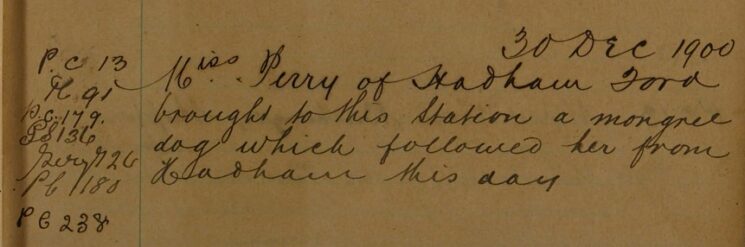 30 Dec 1900
P.C 13
Miss. Perry of Hadham Ford
91
brought to this Station a mongrel
P.C. 179.
136
dog which followed her from
726
Hadham this day
PC 180
PC 238